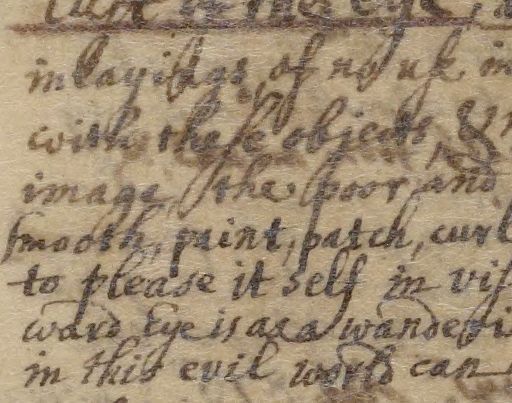 Eye,
inlayings of no use, in
with these objects &
image, the poor and
smooth, paint, patch, curl
to please it self in vis
ward Eye is as a wanderi
in this evil world can